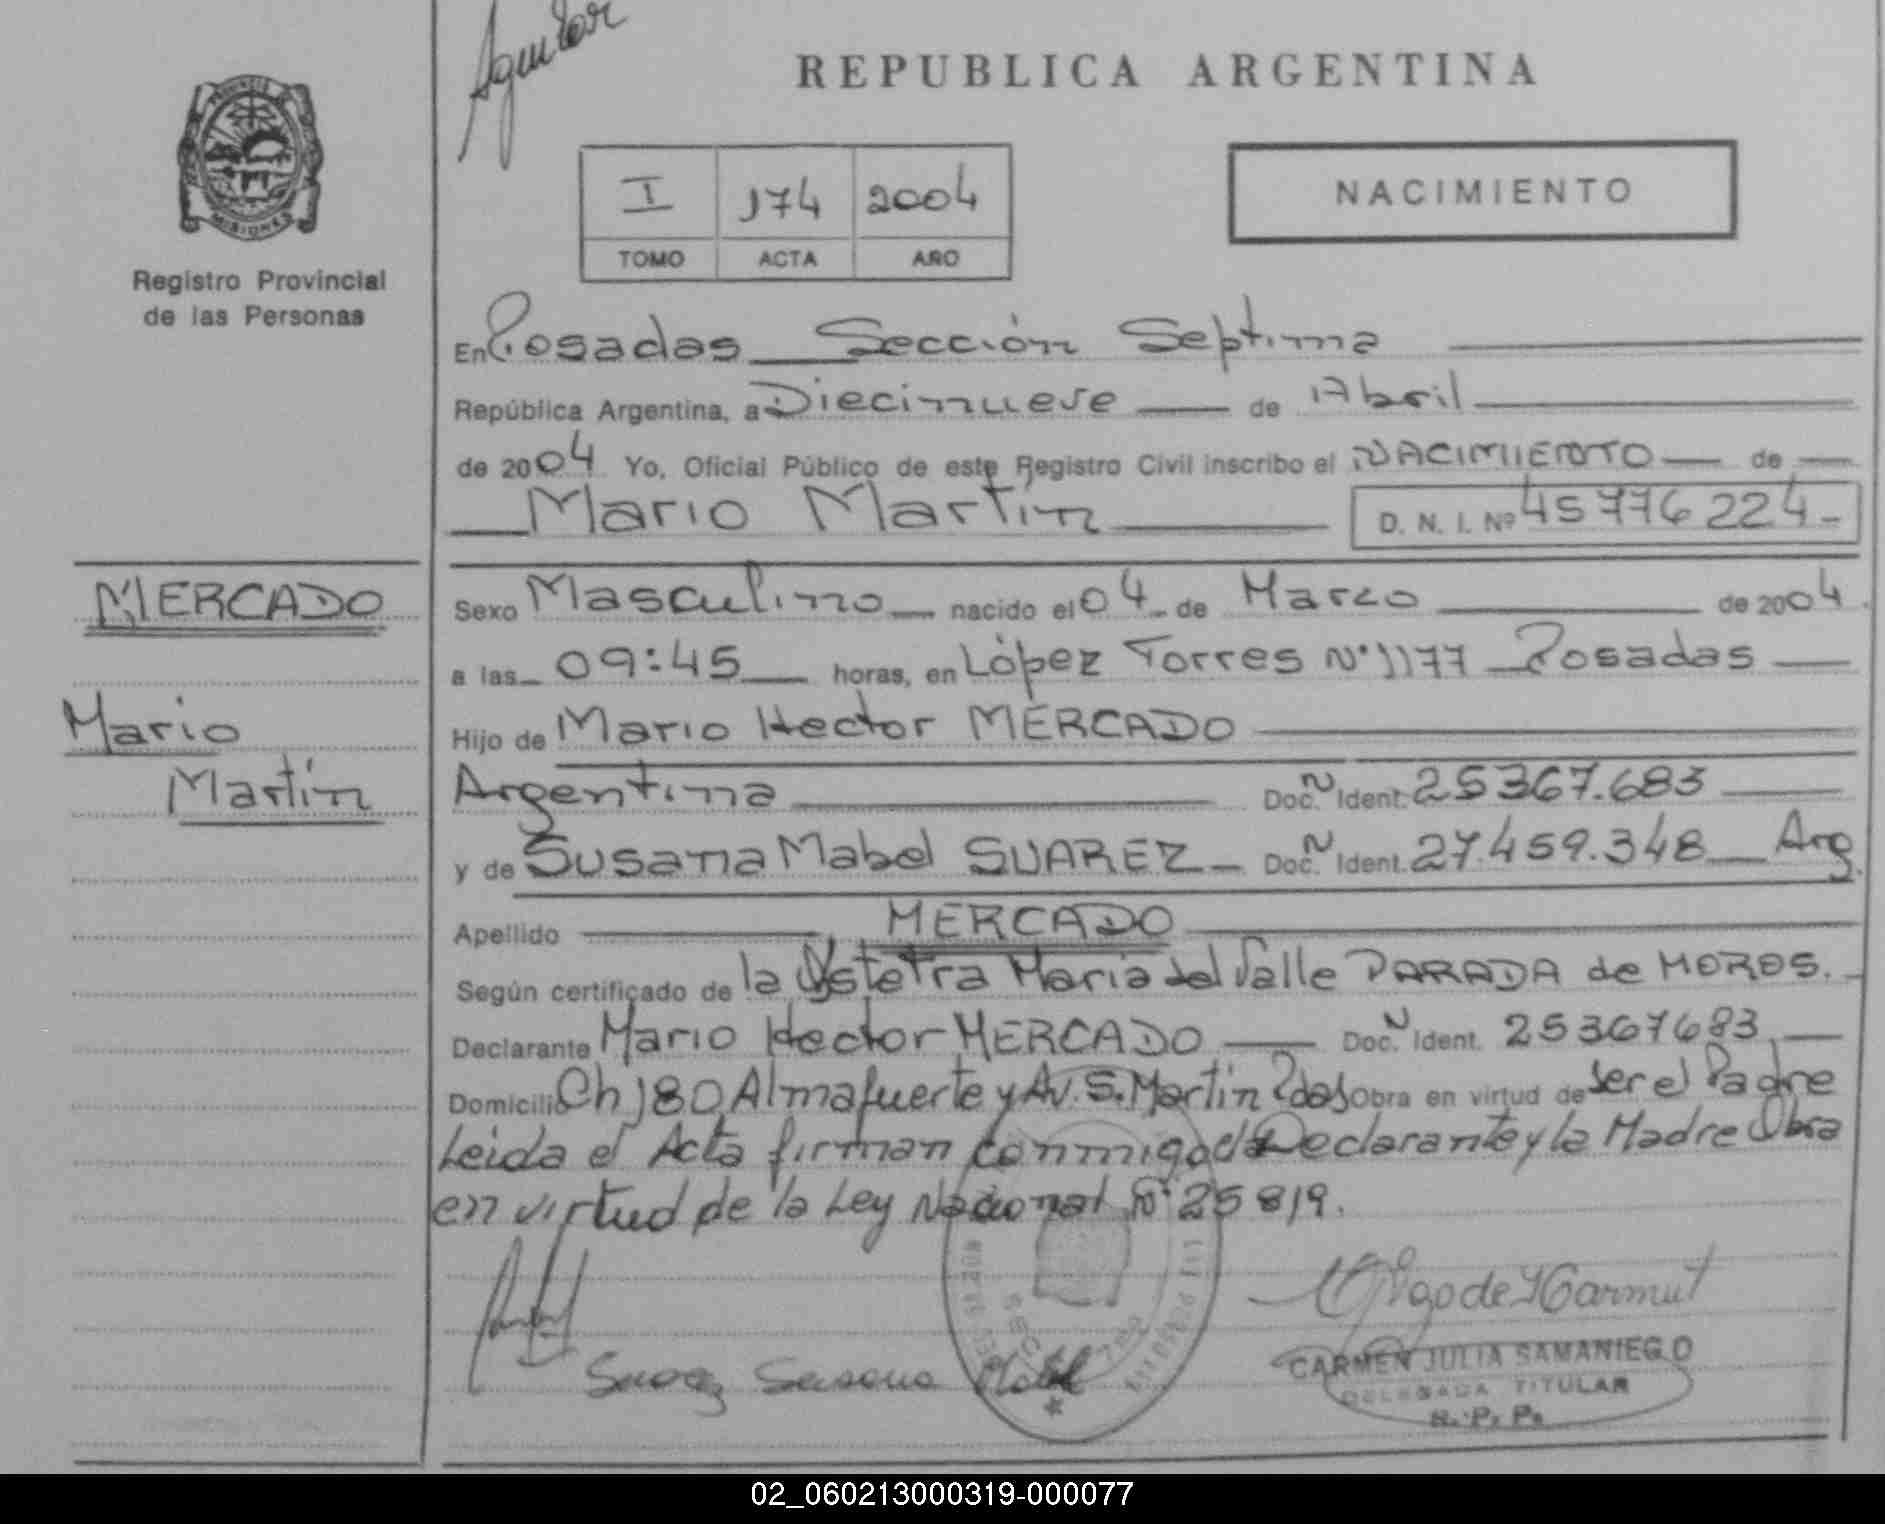 Aguilar
REPUBLICA ARGENTINA
PROVINCIA DE
MISIONES
Registro Provincial
de las Personas
I 174 2004
TOMO ACTA AÑO
NACIMIENTO
En Posadas Sección Septima
República Argentina, a Diecinueve de Abril
de 2004 Yo, Oficial Público de este Registro Civil inscribo el NACIMIENTO de
Mario Martín D. N. I. Nº 45776224
MERCADO
Sexo Masculino nacido el 04 de Marzo de 2004
a las 09:45 horas, en López Torres Nº 1177 Posadas
Mario
Hijo de Mario Hector MERCADO
Martín
Argentina Doc. N Ident. 25367.683
y de Susana Mabel SUAREZ Doc. N Ident. 27.459.348 Arg.
Apellido MERCADO
Según certificado de la Obstetra Maria del Valle PARADA de MOROS.
Declarante Mario Hector MERCADO Doc. N Ident. 25367683
Domicilio Ch 180 Almafuerte y Av. S. Martin Pdas Obra en virtud de Ser el Padre
Leida el Acta firman conmigo el Declarante y la Madre Obra
en virtud de la Ley Nacional Nº 25819.
Suarez Susana Mabel
CARMEN JULIA SAMANIEGO
DELEGADA TITULAR
R. P. P.
02_060213000319-000077